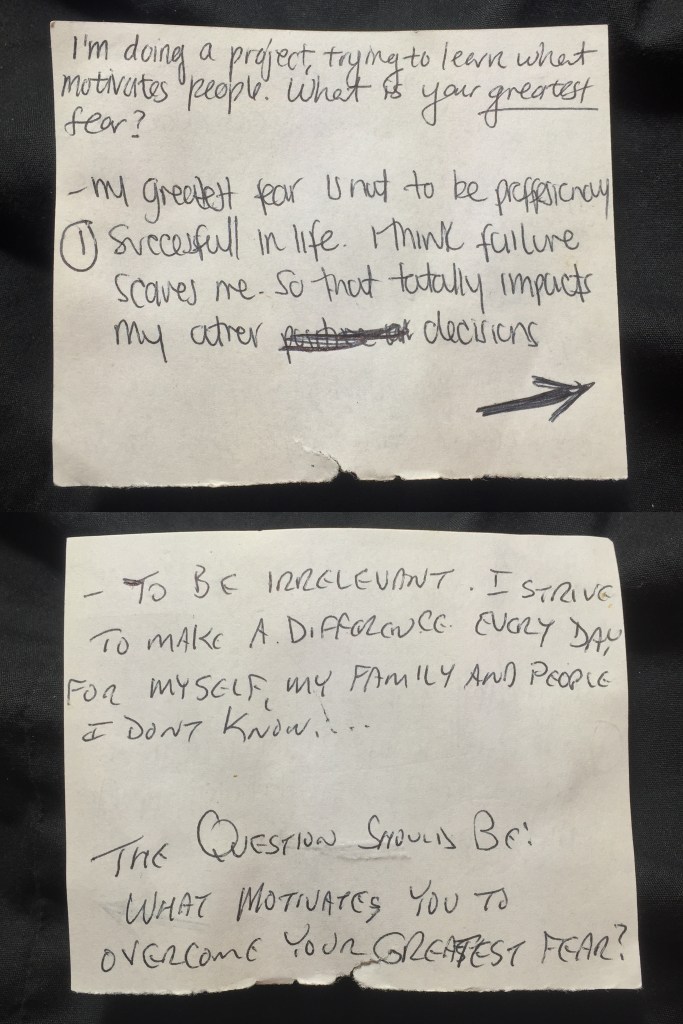 I'm doing a project, trying to learn what
motivates people. What is your greatest
fear?
- my greatest fear is not to be
① Succesfull in life. I think failure
scares me. So that totally impacts
my other decisions
- TO BE IRRELEVANT. I STRIVE
TO MAKE A DIFFERENCE EVERY DAY
FOR MYSELF, MY FAMILY AND PEOPLE
I DONT KNOW....
THE QUESTION SHOULD BE:
WHAT MOTIVATES YOU TO
OVERCOME YOUR GREATEST FEAR?